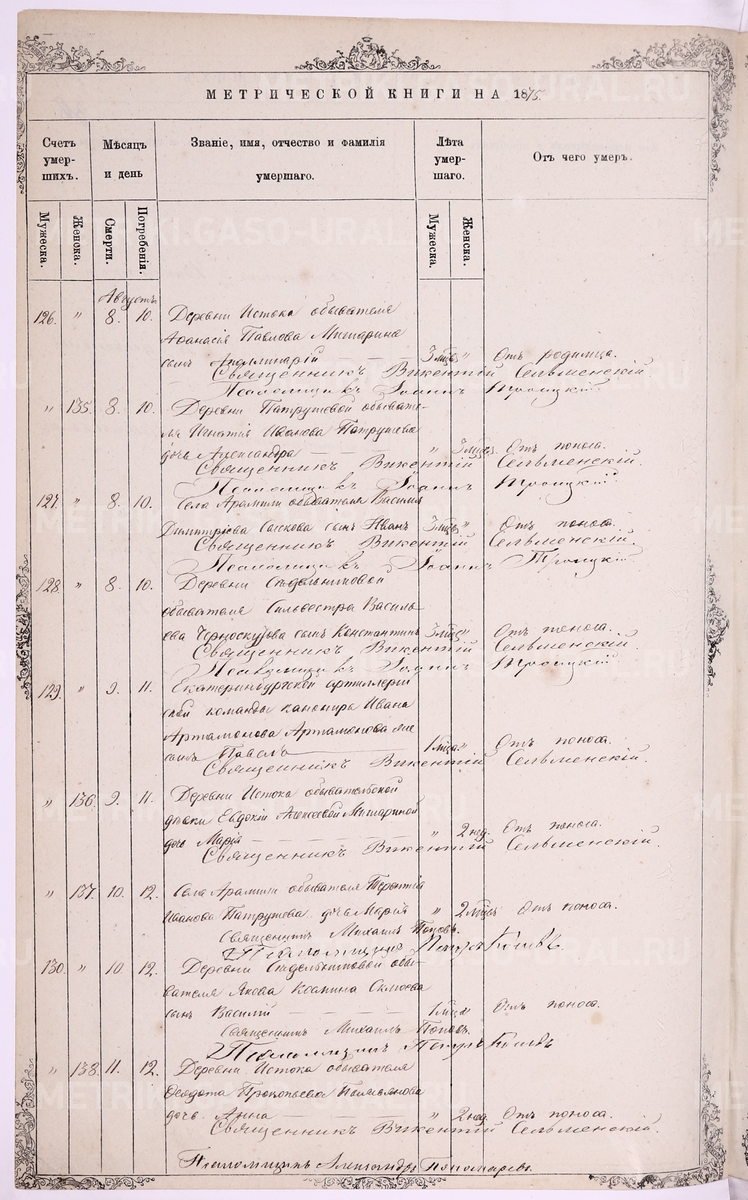 МЕТРИЧЕСКОЙ КНИГИ НА 1875.
Счетъ умер- шихъ. Мѣсяцъ и день Званіе, имя, отчество и фамилія умершаго. Лѣта умер- шаго. Отъ чего умеръ.
Мужеска. Женска. Смерти. Погребенія. Мужеска. Женска.
Августъ
126. " 8. 10. Деревни Истока обывателя
Аѳанасія Павлова Мишарина
сынъ Аполлинарій 3 мѣс. " Отъ родимца.
Священникъ Викентій Сельменскій
Псаломщикъ Іоаннъ Троицкій.
" 135. 8. 10. Деревни Патрушевой обывате-
ля Игнатія Иванова Патрушева
дочь Александра " 3 мѣс. Отъ поноса.
Священникъ Викентій Сельменскій.
Псаломщикъ Іоаннъ Троицкій.
127. " 8. 10. Села Арамили обывателя Василія
Димитріева сынъ Иванъ 3 мѣс. " Отъ поноса.
Священникъ Викентій Сельменскій.
Псаломщикъ Іоаннъ Троицкій
128. " 8. 10. Деревни Сѣдельниковой
обывателя Сильвестра Василь-
ева Черноскутова сынъ Константинъ 3 мѣс. " Отъ поноса.
Священникъ Викентій Сельменскій.
Псаломщикъ Іоаннъ Троицкій
129. " 9. 11. Екатеринбургской артиллерій
ской команды канонира Ивана
Артамонова Артамонова
сынъ Павелъ 1 мѣс. " Отъ поноса.
Священникъ Викентій Сельменскій.
" 136. 9. 11. Деревни Истока обывательской
дѣвки Евдокіи Алексѣевой Мишариной
дочь Марія " 2 нед. Отъ поноса.
Священникъ Викентій Сельменскій
" 137. 10. 12. Села Арамили обывателя Терентія
Иванова Патрушева дочь Марія " 2 мѣс. Отъ поноса.
Священникъ Михаилъ Поповъ.
Псаломщикъ Петръ
130. " 10. 12. Деревни Сѣдельниковой обы-
вателя Якова Козмина
сынъ Василій 1 мѣс. " Отъ поноса.
Священникъ Михаилъ Поповъ.
Псаломщикъ Петръ
" 138. 11. 12. Деревни Истока обывателя
Ѳеодота Прокопьева
дочь Анна " 2 нед. Отъ поноса.
Священникъ Викентій Сельменскій.
Псаломщикъ Александръ Пономаревъ.